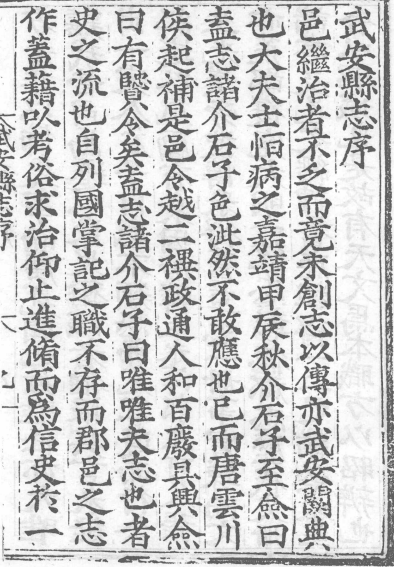 武安縣志序
邑繼治者不乏而竟未創志以傳亦武安闕典
也大夫士恒病之嘉靖甲辰秋介石子至僉曰
盍志諸介石子色泚然不敢應也已而唐雲川
侯起補是邑令越二禩政通人和百廢具興僉
曰有賢令矣盍志諸介石子曰唯唯夫志也者
史之流也自列國掌記之職不存而郡邑之志
作蓋藉以考俗求治仰止進脩而爲信史於一
武安縣志序